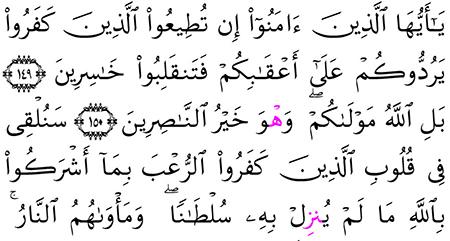 يَـٰٓأَيُّهَا ٱلَّذِينَ ءَامَنُوٓا۟ إِن تُطِيعُوا۟ ٱلَّذِينَ كَفَرُوا۟
يَرُدُّوكُمْ عَلَىٰٓ أَعْقَـٰبِكُمْ فَتَنقَلِبُوا۟ خَـٰسِرِينَ ١٤٩
بَلِ ٱللَّهُ مَوْلَىٰكُمْ ۖ وَهْوَ خَيْرُ ٱلنَّـٰصِرِينَ ١٥٠ سَنُلْقِى
فِى قُلُوبِ ٱلَّذِينَ كَفَرُوا۟ ٱلرُّعْبَ بِمَآ أَشْرَكُوا۟
بِٱللَّهِ مَا لَمْ يُنزِلْ بِهِۦ سُلْطَـٰنًا ۖ وَمَأْوَىٰهُمُ ٱلنَّارُ ۚ